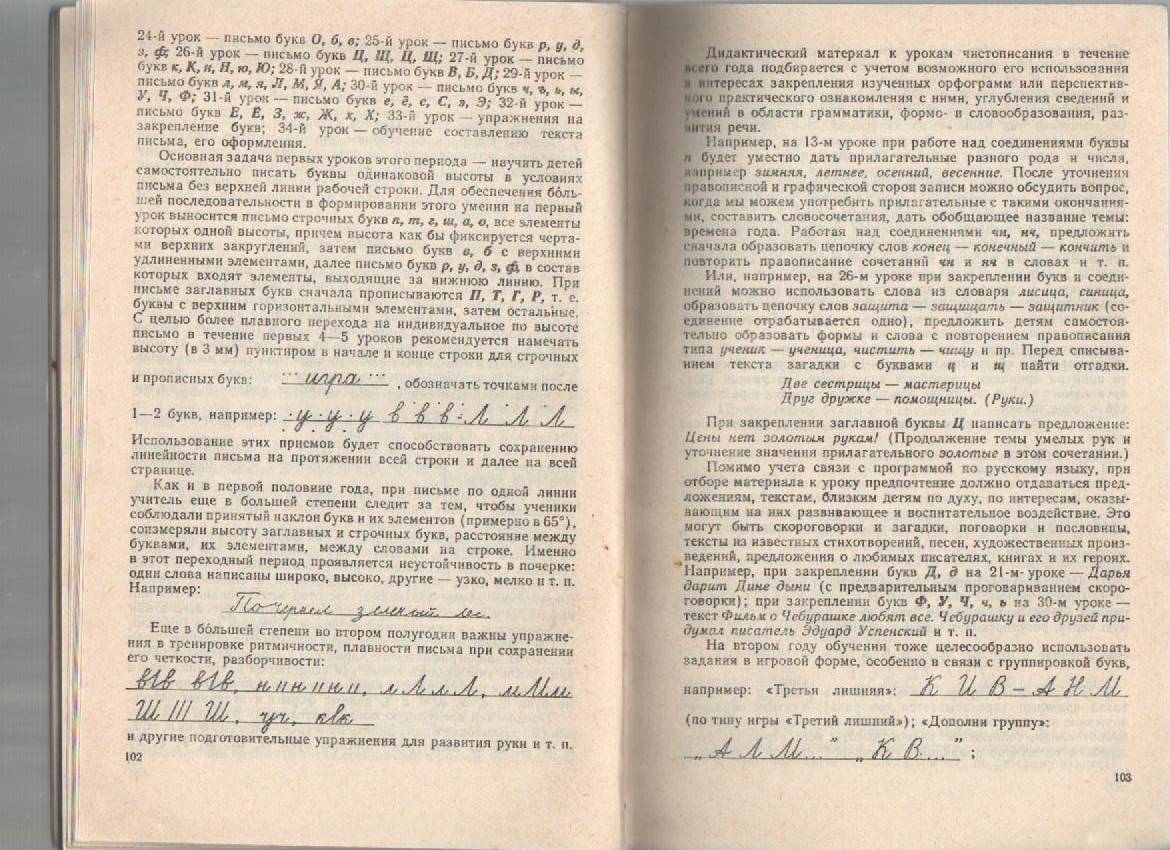 24-й урок — письмо букв О, б, в; 25-й урок — письмо букв р, у, д,
з, ф; 26-й урок — письмо букв Ц, Щ, Ц, Щ; 27-й урок — письмо
букв к, К, н, Н, ю, Ю; 28-й урок — письмо букв В, Б, Д; 29-й урок —
письмо букв л, м, я, Л, М, Я, А; 30-й урок — письмо букв ч, ъ, ь, ы,
У, Ч, Ф; 31-й урок — письмо букв е, ё, с, С, э, Э; 32-й урок —
письмо букв Е, Ё, З, ж, Ж, х, Х; 33-й урок — упражнения на
закрепление букв; 34-й урок — обучение составлению текста
письма, его оформления.
Основная задача первых уроков этого периода — научить детей
самостоятельно писать буквы одинаковой высоты в условиях
письма без верхней линии рабочей строки. Для обеспечения бо́ль-
шей последовательности в формировании этого умения на первый
урок выносится письмо строчных букв п, т, г, ш, а, о, все элементы
которых одной высоты, причем высота как бы фиксируется черта-
ми верхних закруглений, затем письмо букв в, б с верхними
удлиненными элементами, далее письмо букв р, у, д, з, ф, в состав
которых входят элементы, выходящие за нижнюю линию. При
письме заглавных букв сначала прописываются П, Т, Г, Р, т. е.
буквы с верхним горизонтальными элементами, затем остальные.
С целью более плавного перехода на индивидуальное по высоте
письмо в течение первых 4—5 уроков рекомендуется намечать
высоту (в 3 мм) пунктиром в начале и конце строки для строчных
и прописных букв: ··· игра ··· , обозначать точками после
1—2 букв, например: · у · у · у в в в · Л Л Л
Использование этих приемов будет способствовать сохранению
линейности письма на протяжении всей строки и далее на всей
странице.
Как и в первой половине года, при письме по одной линии
учитель еще в большей степени следит за тем, чтобы ученики
соблюдали принятый наклон букв и их элементов (примерно в 65°),
соизмеряли высоту заглавных и строчных букв, расстояние между
буквами, их элементами, между словами на строке. Именно
в этот переходный период проявляется неустойчивость в почерке:
одни слова написаны широко, высоко, другие — узко, мелко и т. п.
Например:
Почернел зеленый лес.
Еще в бо́льшей степени во втором полугодии важны упражне-
ния в тренировке ритмичности, плавности письма при сохранении
его четкости, разборчивости:
вIв вIв, нпнпнп, лЛлЛ, мМм
Ш Ш Ш, чуч, квк
и другие подготовительные упражнения для развития руки и т. п.
102
Дидактический материал к урокам чистописания в течение
всего года подбирается с учетом возможного его использования
в интересах закрепления изученных орфограмм или перспектив-
ного практического ознакомления с ними, углубления сведений и
умений в области грамматики, формо- и словообразования, раз-
вития речи.
Например, на 13-м уроке при работе над соединениями буквы
н будет уместно дать прилагательные разного рода и числа,
например зимняя, летнее, осенний, весенние. После уточнения
правописной и графической сторон записи можно обсудить вопрос,
когда мы можем употребить прилагательные с такими окончания-
ми, составить словосочетания, дать обобщающее название темы:
времена года. Работая над соединениями чн, нч, предложить
сначала образовать цепочку слов конец — конечный — кончить и
повторить правописание сочетаний чн и нч в словах и т. п.
Или, например, на 26-м уроке при закреплении букв и соеди-
нений можно использовать слова из словаря лисица, синица,
образовать цепочку слов защита — защищать — защитник (со-
единение отрабатывается одно), предложить детям самостоя-
тельно образовать формы и слова с повторением правописания
типа ученик — ученица, чистить — чищу и пр. Перед списыва-
нием текста загадки с буквами ц и щ найти отгадки.
Две сестрицы — мастерицы
Друг дружке — помощницы. (Руки.)
При закреплении заглавной буквы Ц написать предложение:
Цены нет золотым рукам! (Продолжение темы умелых рук и
уточнение значения прилагательного золотые в этом сочетании.)
Помимо учета связи с программой по русскому языку, при
отборе материала к уроку предпочтение должно отдаваться пред-
ложениям, текстам, близким детям по духу, по интересам, оказы-
вающим на них развивающее и воспитательное воздействие. Это
могут быть скороговорки и загадки, поговорки и пословицы,
тексты из известных стихотворений, песен, художественных произ-
ведений, предложения о любимых писателях, книгах и их героях.
Например, при закреплении букв Д, д на 21-м уроке — Дарья
дарит Дине дыни (с предварительным проговариванием скоро-
говорки); при закреплении букв Ф, У, Ч, ч, ь на 30-м уроке —
текст Фильм о Чебурашке любят все. Чебурашку и его друзей при-
думал писатель Эдуард Успенский и т. п.
На втором году обучения тоже целесообразно использовать
задания в игровой форме, особенно в связи с группировкой букв,
например: «Третья лишняя»: К И В — А Н М
(по типу игры «Третий лишний»); «Дополни группу»:
„А Л М...” „К В...” ;
103